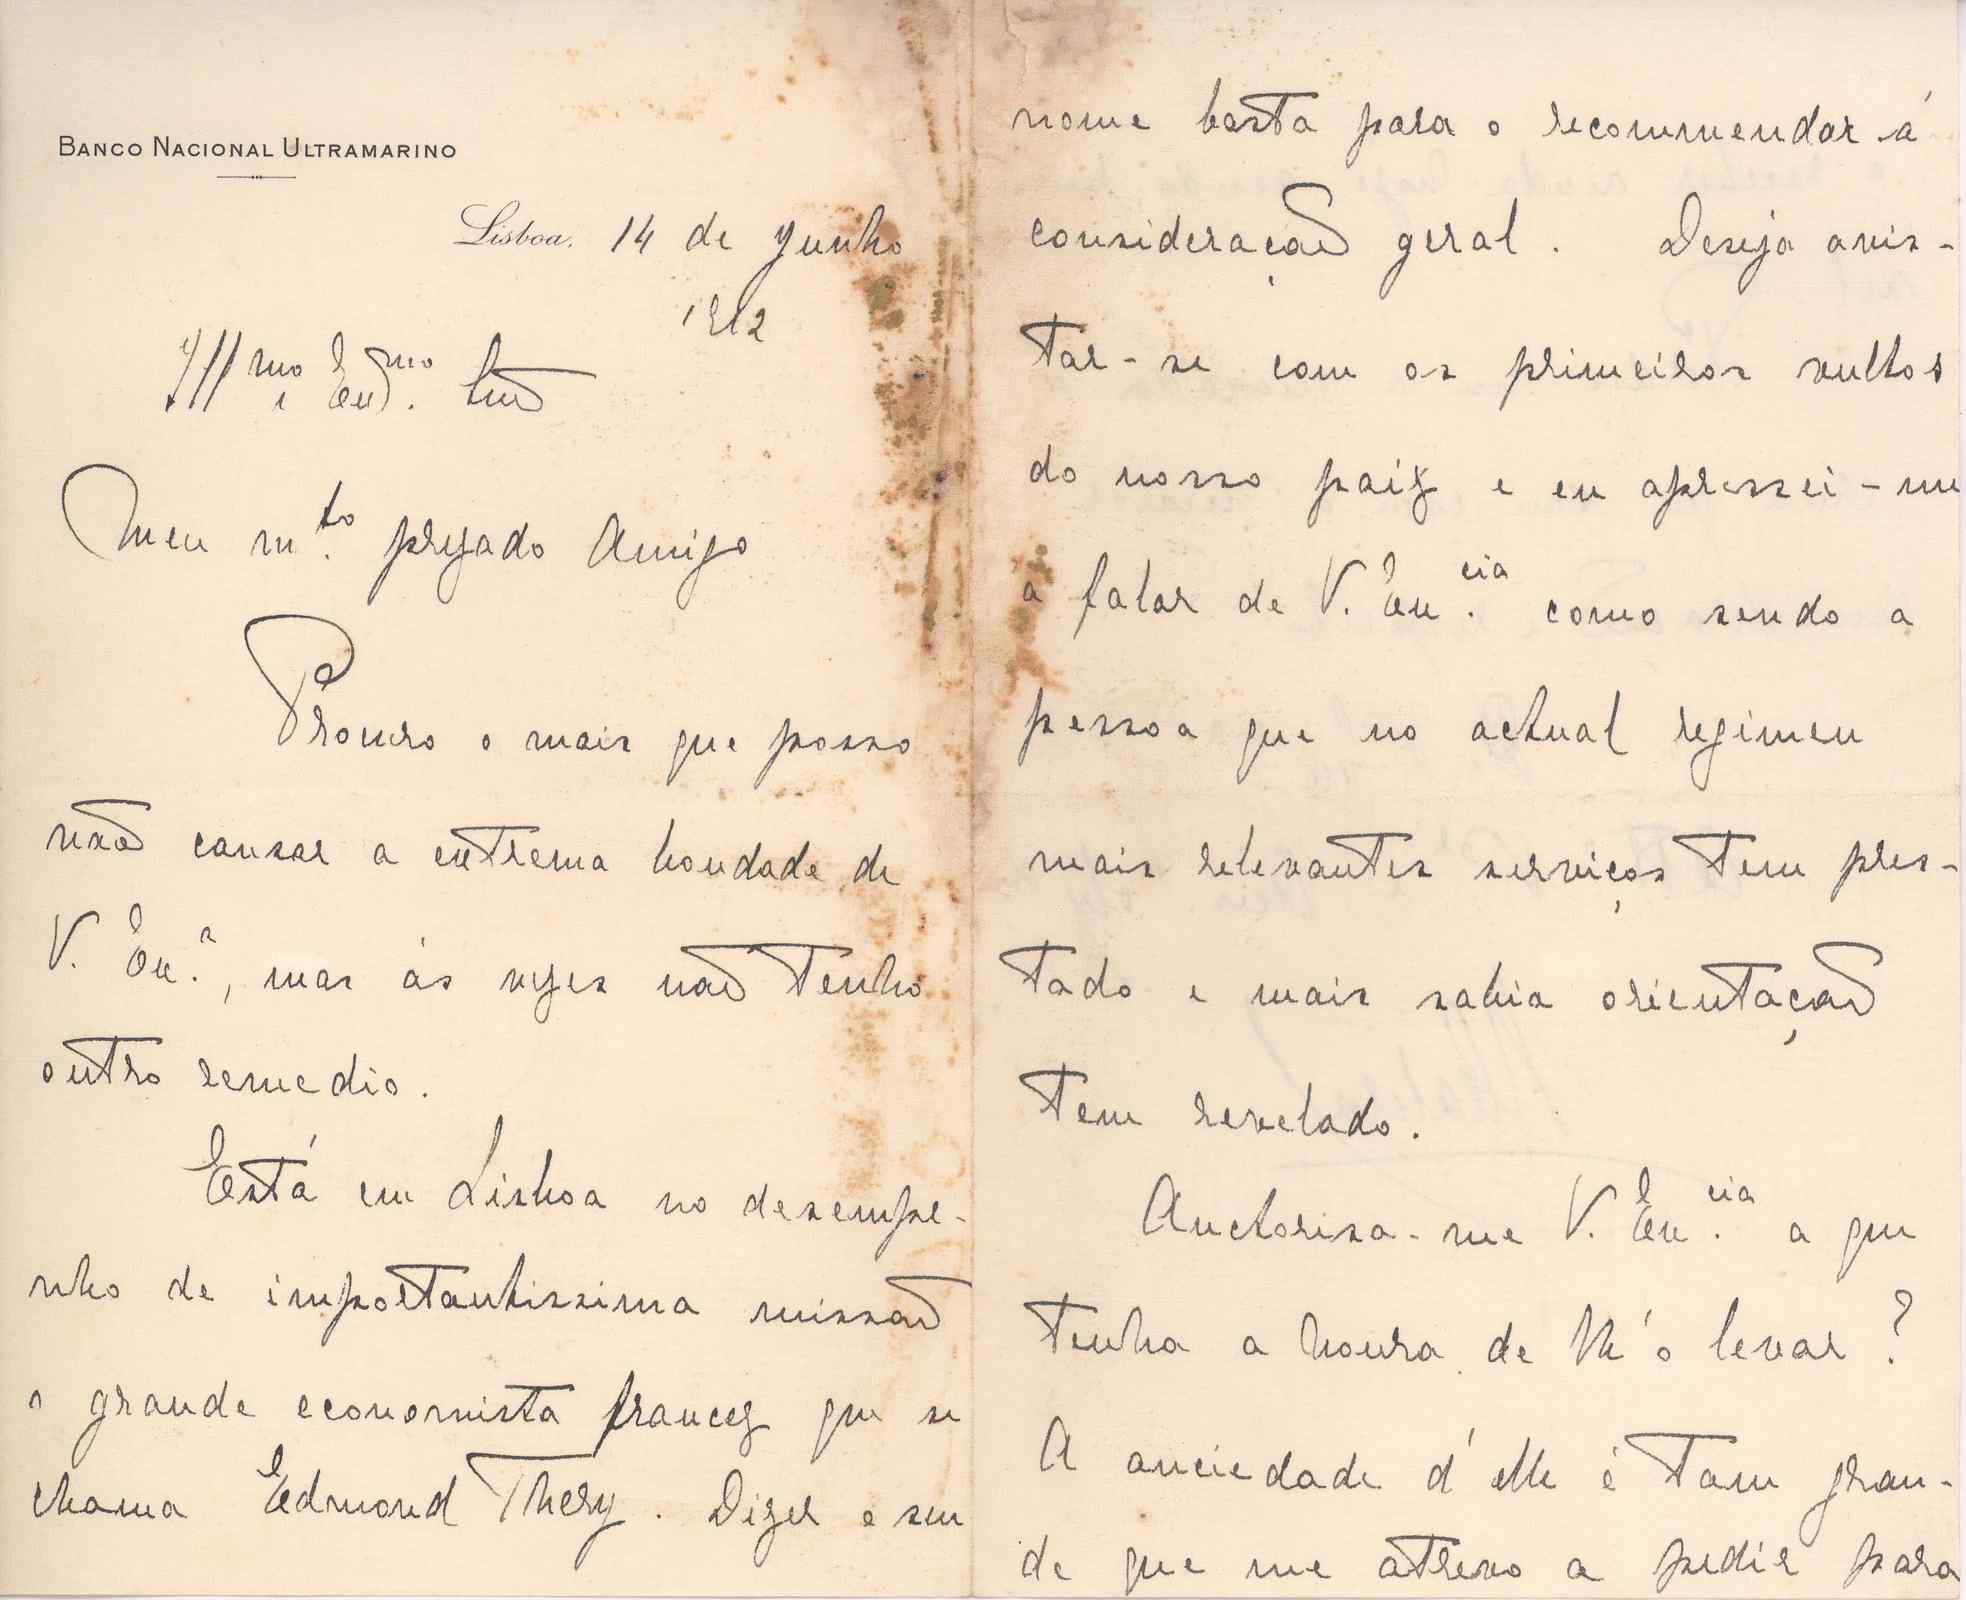 BANCO NACIONAL ULTRAMARINO
Lisboa, 14 de Junho
1912
Illmo e Exmo. Snr
Meu m.to prezado Amigo
Procuro o mais que posso
não cansar a extrema bondade de
V. Ex.a, mas ás vezes não tenho
outro remedio.
Está em Lisboa no desempe-
nho de importantissima missão
o grande economista francez que se
chama Edmond Thery. Dizer o seu
nome basta para o recommendar á
consideração geral. Deseja avis-
tar-se com os primeiros vultos
do nosso paiz e eu apressei-me
a falar de V. Ex.cia como sendo a
pessoa que no actual regimen
mais relevantes serviços tem pres-
tado e mais sabia orientação
tem revelado.
Auctorisa-me V. Ex.cia a que
tenha a honra de lh'o levar?
A anciedade d'elle é tam gran-
de que me atrevo a pedir para